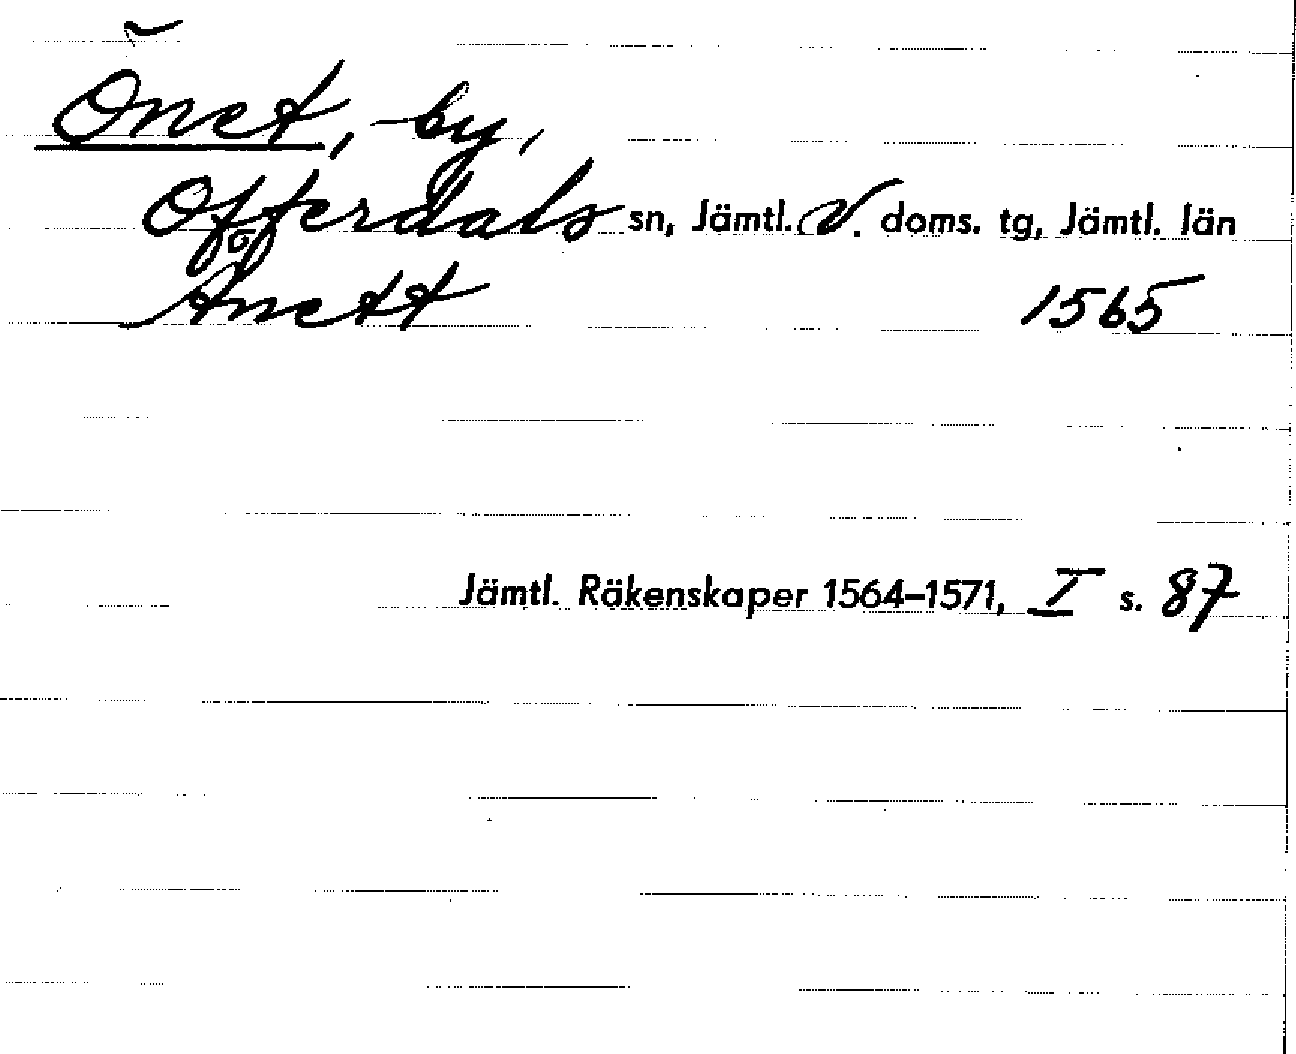 Önet, by,
Offerdals sn, Jämtl. V. doms. tg, Jämtl. län
Ånett 1565
Jämtl. Räkenskaper 1564–1571, I s. 87